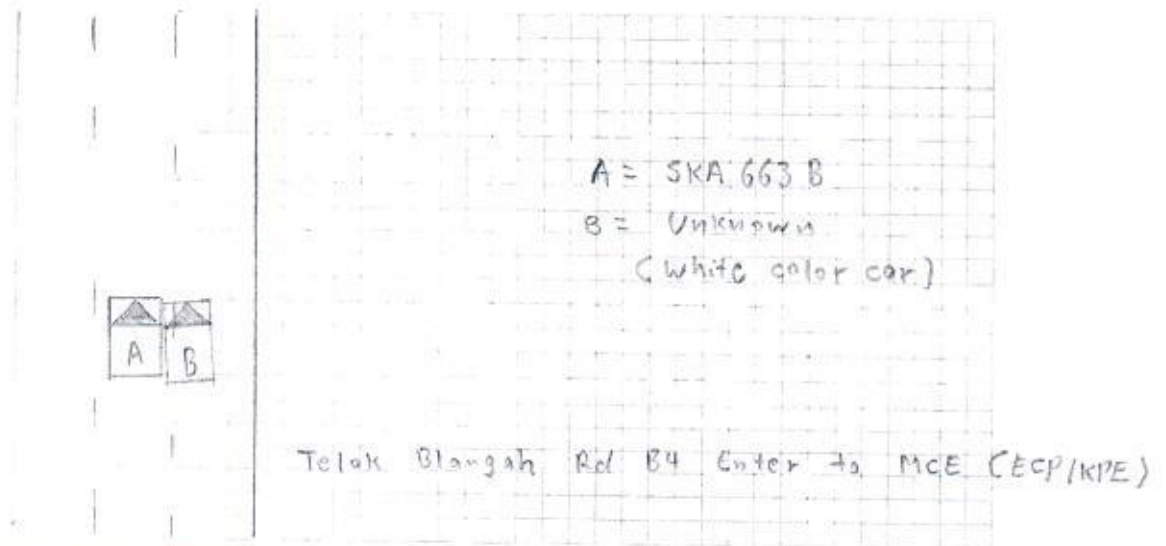 A = SKA 663 B
B = Unknown
(white color car)
A
B
Telok Blangah Rd B4 Enter to MCE (ECP/KPE)